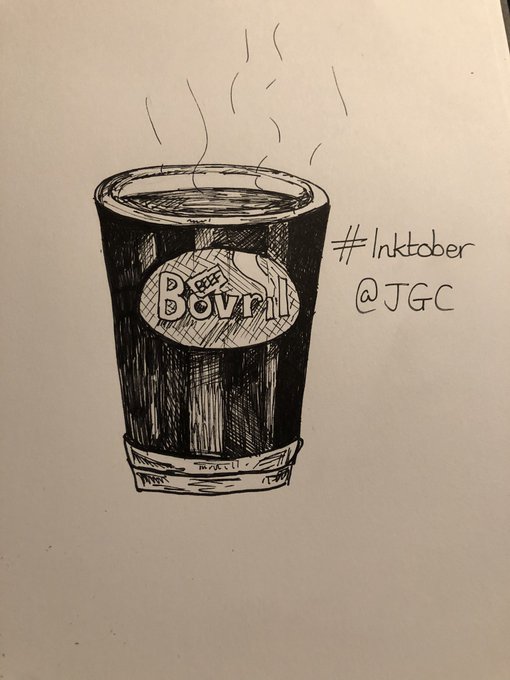 BEEF
Bovril
#Inktober
@JGC